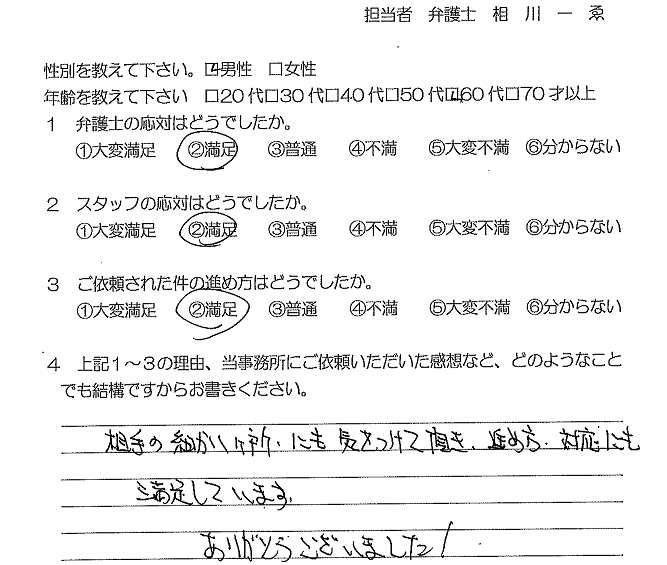 担当者 弁護士 相川一ゑ
性別を教えて下さい。☑男性 □女性
年齢を教えて下さい □20代□30代□40代□50代☑60代□70才以上
1 弁護士の応対はどうでしたか。
①大変満足 ②満足 ③普通 ④不満 ⑤大変不満 ⑥分からない
2 スタッフの応対はどうでしたか。
①大変満足 ②満足 ③普通 ④不満 ⑤大変不満 ⑥分からない
3 ご依頼された件の進め方はどうでしたか。
①大変満足 ②満足 ③普通 ④不満 ⑤大変不満 ⑥分からない
4 上記1～3の理由、当事務所にご依頼いただいた感想など、どのようなこと
でも結構ですからお書きください。
相手の細かいヶ所にも気をつけて頂き、進め方、対応にも
満足しています。
ありがとうございました!